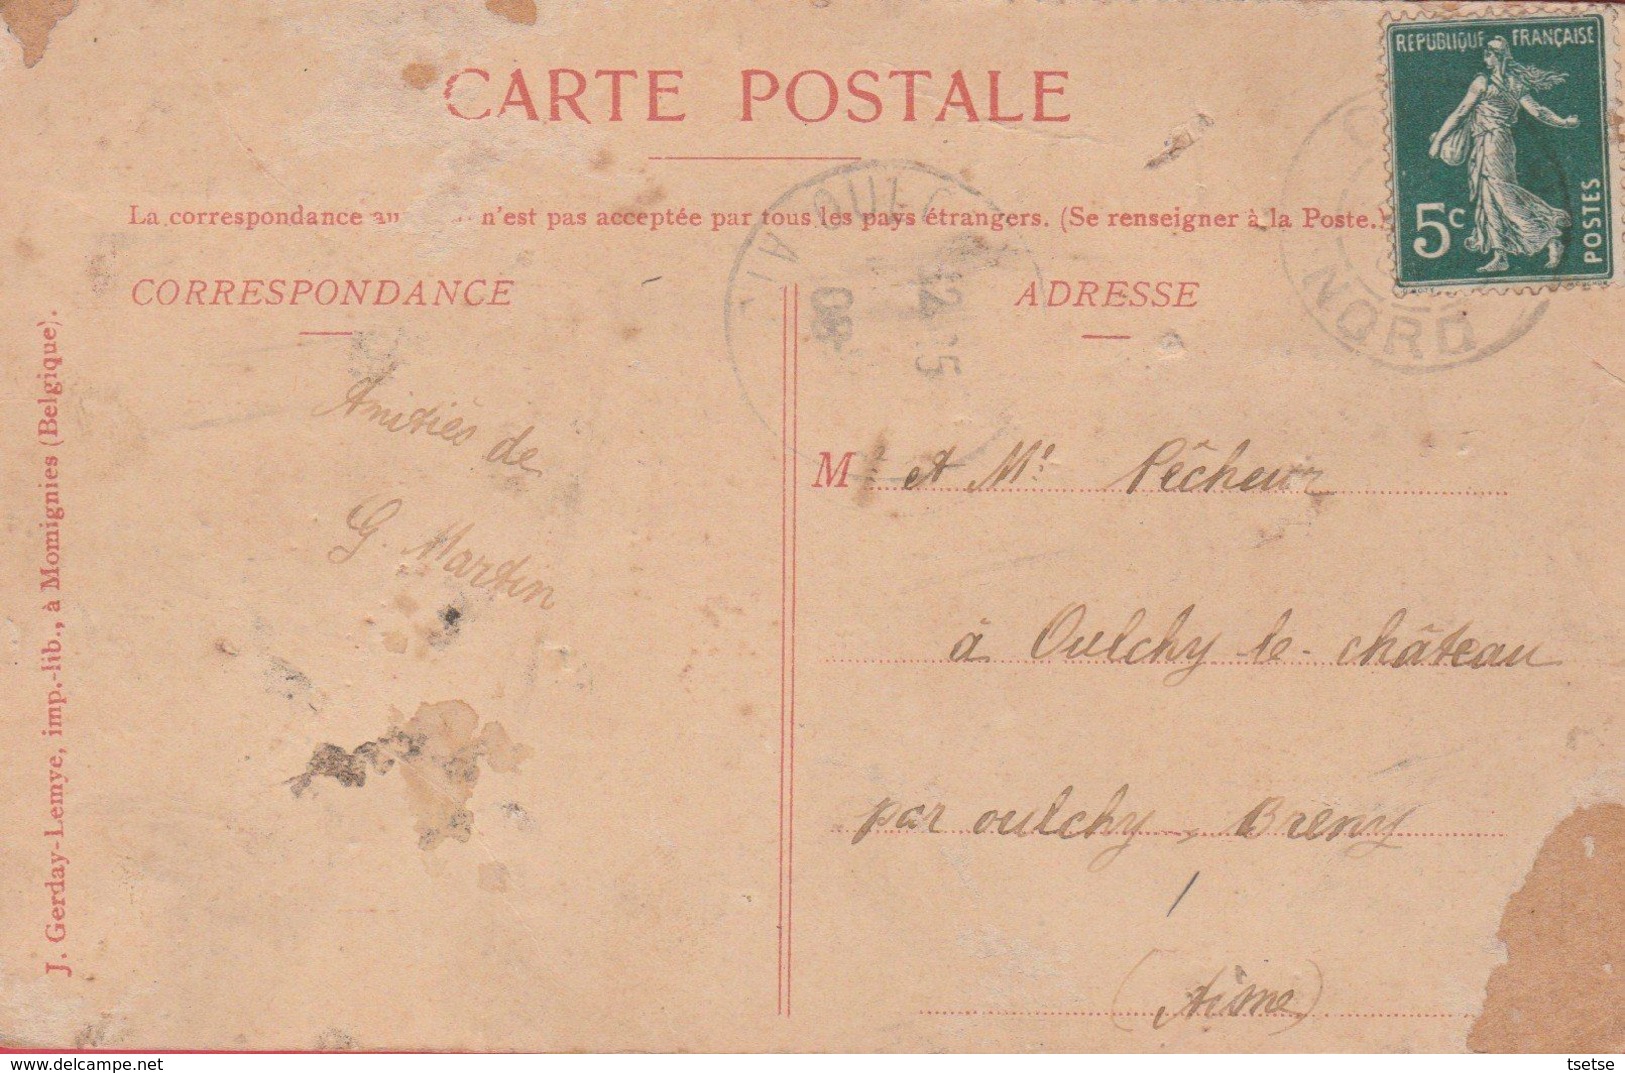 CARTE POSTALE
REPUBLIQUE FRANÇAISE
5c
POSTES
La correspondance au n'est pas acceptée par tous les pays étrangers. (Se renseigner à la Poste.)
OULC
12 15
08
NORD
CORRESPONDANCE
ADRESSE
Amitiés de
G. Martin
M. et Mᵉ Pêcheur
à Oulchy le-château
par oulchy-Breny
(Aisne)
J. Gerday-Lemye, imp.-lib., à Momignies (Belgique).
tsetse